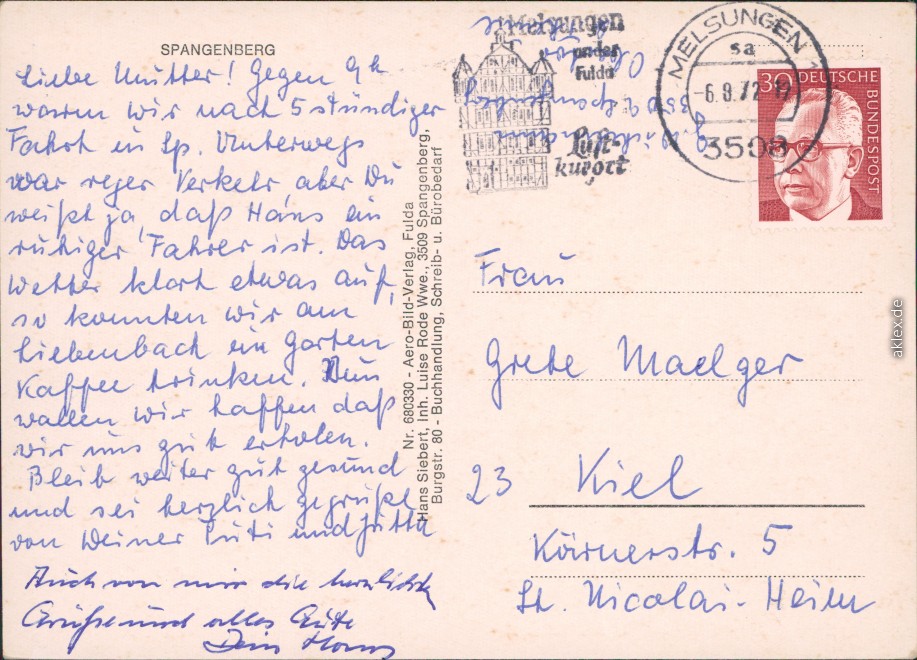 SPANGENBERG
Liebe Mutter! Gegen 9h
waren wir nach 5 stündiger
Fahrt in Sp. Unterwegs
war reger Verkehr aber Du
weißt ja, daß Hans ein
ruhiger Fahrer ist. Das
Wetter klart etwas auf,
so konnten wir am
Liebenbach im Garten
Kaffee trinken. Nun
wollen wir hoffen daß
wir uns gut erholen.
Bleib weiter gut gesund
und sei herzlich gegrüßt
von Deiner Luti und Jutta
Auch von mir die herzlichsten
Grüße und alles Gute
Dein Hans
Nr. 680330 - Aero-Bild-Verlag, Fulda
Hans Siebert, Inh. Luise Rode Wwe., 3509 Spangenberg,
Burgstr. 80 - Buchhandlung, Schreib- u. Bürobedarf
Melsungen
an der
Fulda
Luft-
kurort
MELSUNGEN 1
sa
-6.9.72-17
3508
30 DEUTSCHE
BUNDESPOST
3509 Spangenberg
Frau
Grete Maelger
23 Kiel
Körnerstr. 5
St. Nicolai-Heim
aklex.de